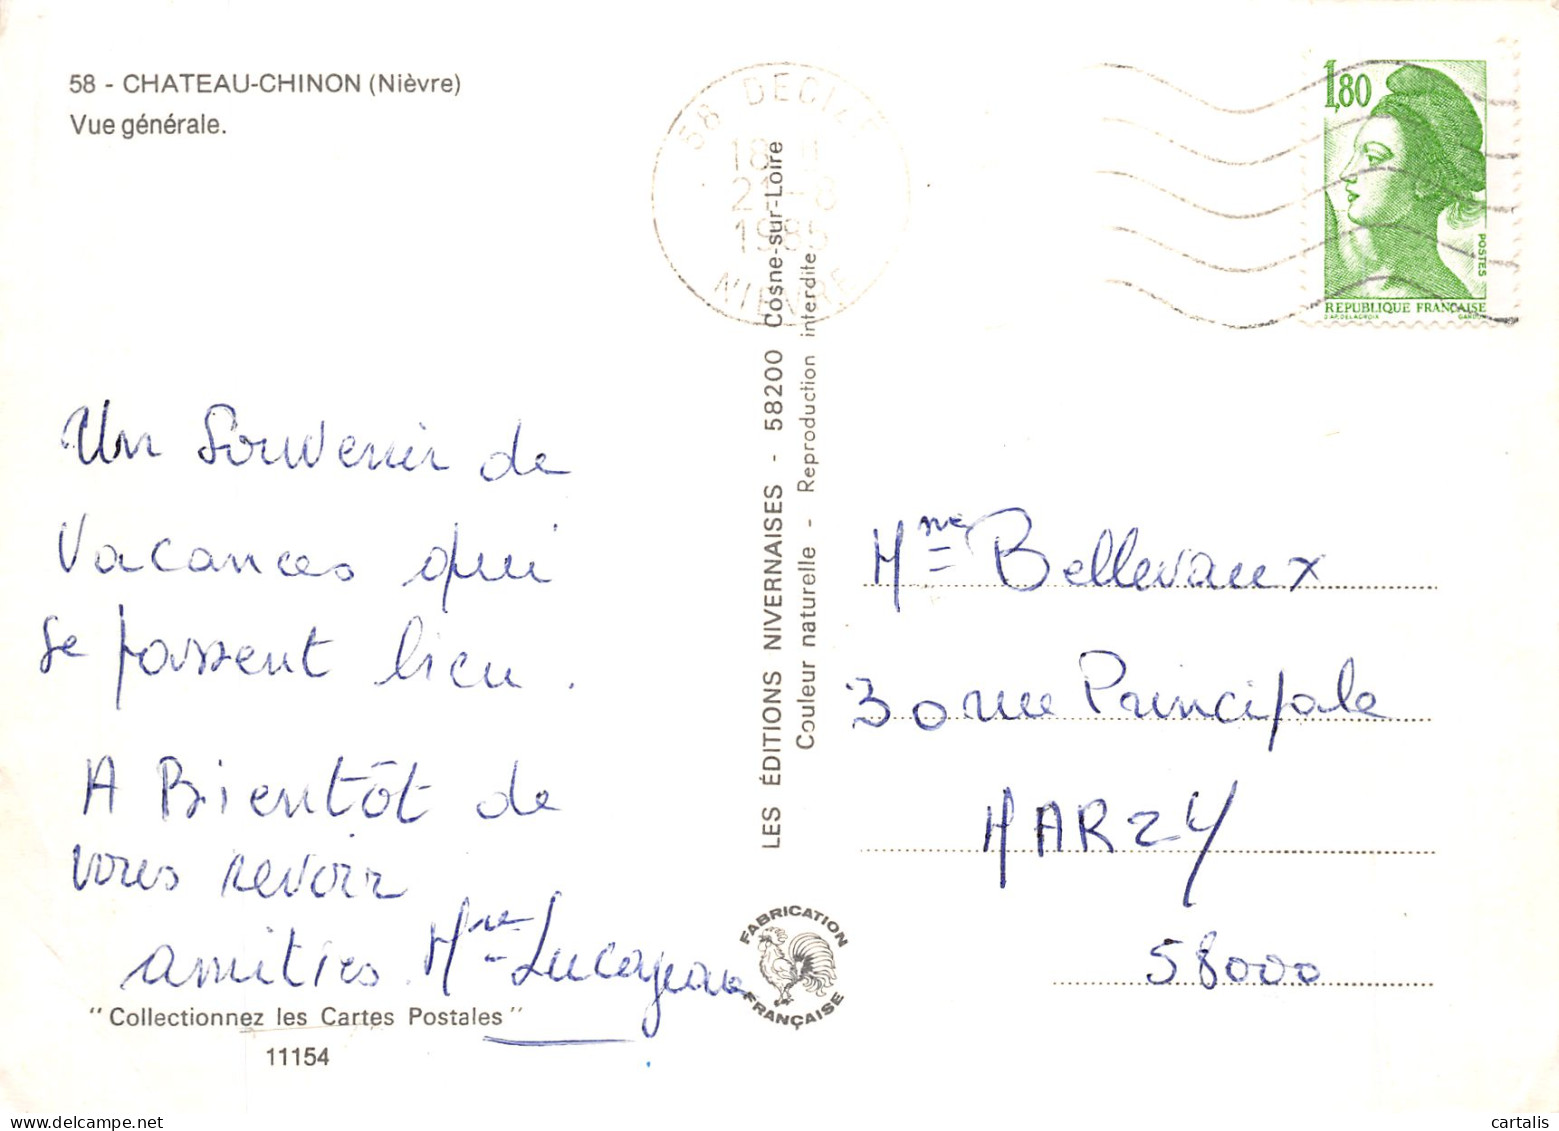 58 - CHATEAU-CHINON (Nièvre)
Vue générale.
58 DECIZE
18 H
21-8
1985
NIEVRE
1,80
POSTES
REPUBLIQUE FRANÇAISE
D'AP. DELACROIX GANDON
Un Souvenir de
Vacances qui
se passent bien.
A Bientôt de
vous revoir
amitiés. Mme
"Collectionnez les Cartes Postales"
11154
LES ÉDITIONS NIVERNAISES - 58200 Cosne-sur-Loire
Couleur naturelle - Reproduction interdite
FABRICATION
FRANÇAISE
Mme Bellevaux
30 rue Principale
MARZY
58000
cartalis